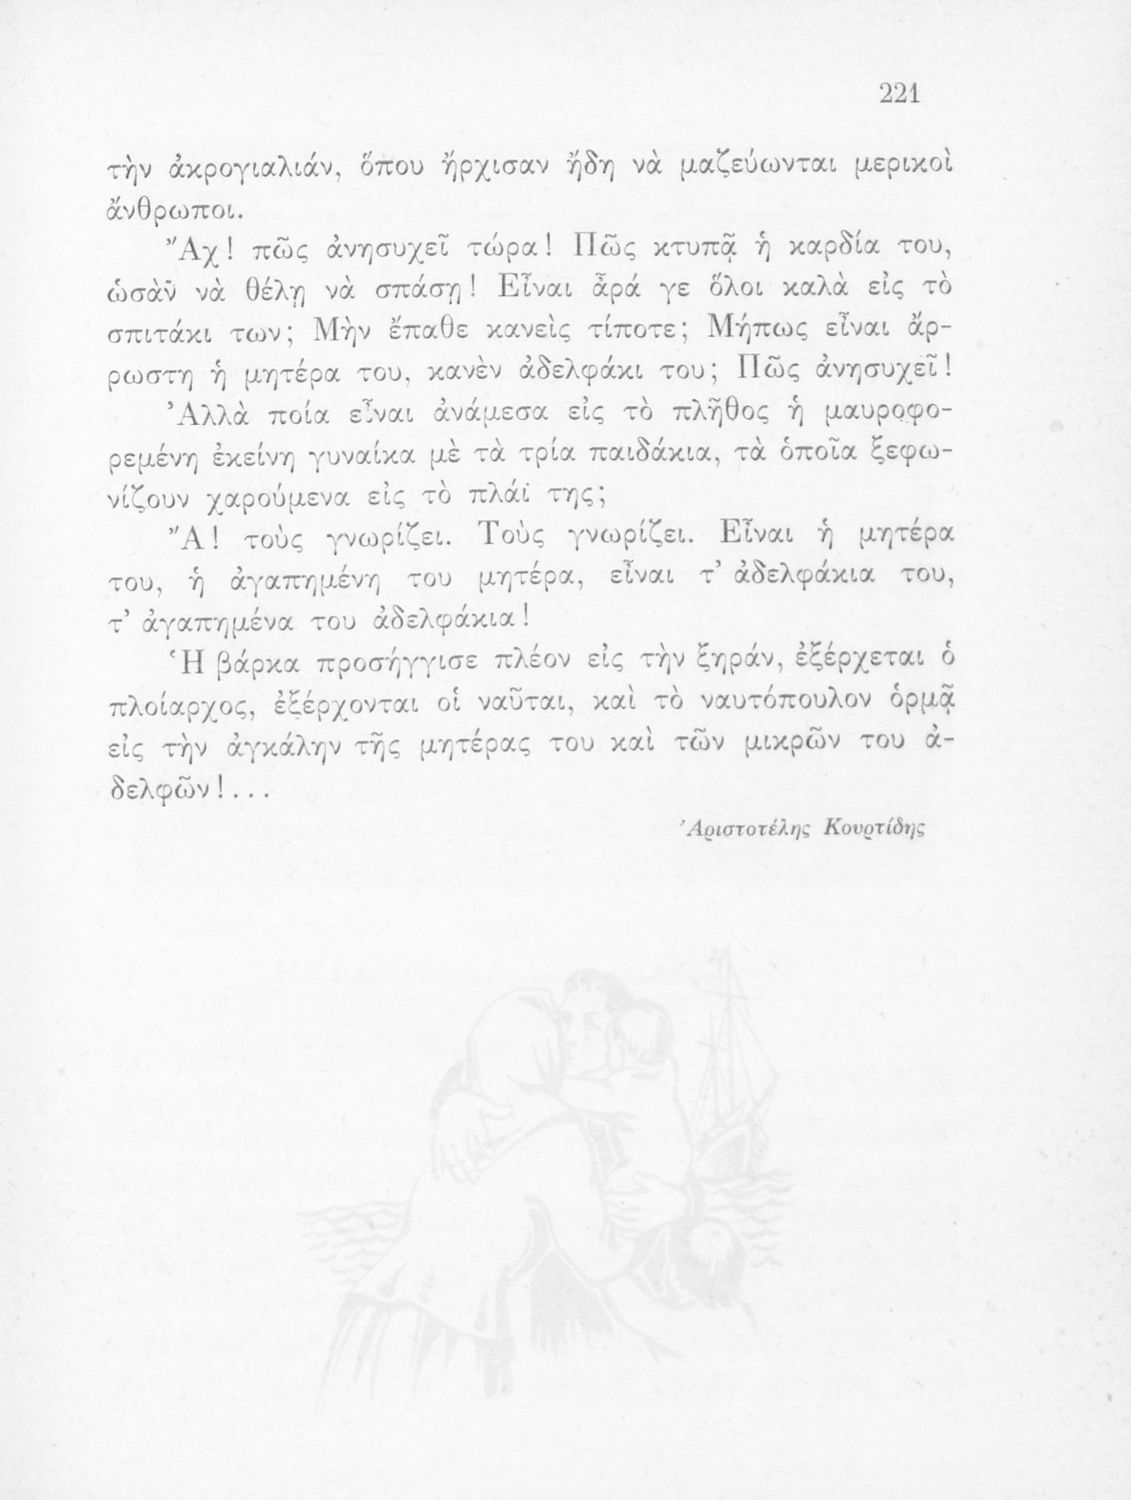 221
τὴν ἀκρογιαλιάν, ὅπου ἤρχισαν ἤδη νὰ μαζεύωνται μερικοὶ
ἄνθρωποι.
Ἂχ! πῶς ἀνησυχεῖ τώρα! Πῶς κτυπᾷ ἡ καρδία του,
ὡσὰν νὰ θέλῃ νὰ σπάσῃ! Εἶναι ἆρά γε ὅλοι καλὰ εἰς τὸ
σπιτάκι των; Μὴν ἔπαθε κανεὶς τίποτε; Μήπως εἶναι ἄρ-
ρωστη ἡ μητέρα του, κανὲν ἀδελφάκι του; Πῶς ἀνησυχεῖ!
Ἀλλὰ ποία εἶναι ἀνάμεσα εἰς τὸ πλῆθος ἡ μαυροφο-
ρεμένη ἐκείνη γυναίκα μὲ τὰ τρία παιδάκια, τὰ ὁποῖα ξεφω-
νίζουν χαρούμενα εἰς τὸ πλάϊ της;
Ἂ! τοὺς γνωρίζει. Τοὺς γνωρίζει. Εἶναι ἡ μητέρα
του, ἡ ἀγαπημένη του μητέρα, εἶναι τ’ ἀδελφάκια του,
τ’ ἀγαπημένα του ἀδελφάκια!
Ἡ βάρκα προσήγγισε πλέον εἰς τὴν ξηράν, ἐξέρχεται ὁ
πλοίαρχος, ἐξέρχονται οἱ ναῦται, καὶ τὸ ναυτόπουλον ὁρμᾷ
εἰς τὴν ἀγκάλην τῆς μητέρας του καὶ τῶν μικρῶν του ἀ-
δελφῶν!...
Ἀριστοτέλης Κουρτίδης